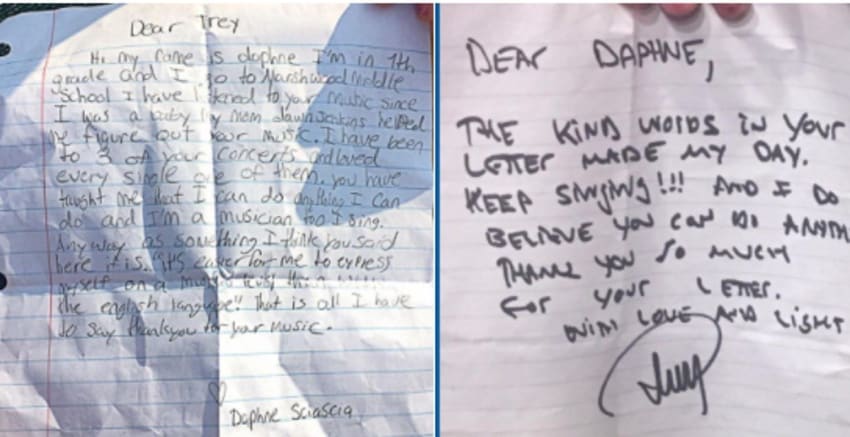 Dear Trey
Hi my name is daphne I'm in 7th
grade and I go to Marshwood Middle
School I have listened to your music since
I was a baby my mom dawn helped
me figure out your music. I have been
to 3 of your concerts and loved
every single one of them. you have
taught me that I can do anything I can
do and I'm a musician too I sing.
Anyway as something I think you said
here it is. "it's easier for me to express
myself on a musical level than
the english language". that is all I have
to say thankyou for your music.
♡
Daphne Sciascia
DEAR DAPHNE,
THE KIND WORDS IN YOUR
LETTER MADE MY DAY.
KEEP SINGING!!! AND I DO
BELIEVE YOU CAN DO ANYTH
THANK YOU SO MUCH
FOR YOUR LETTER.
WITH LOVE AND LIGHT
Trey